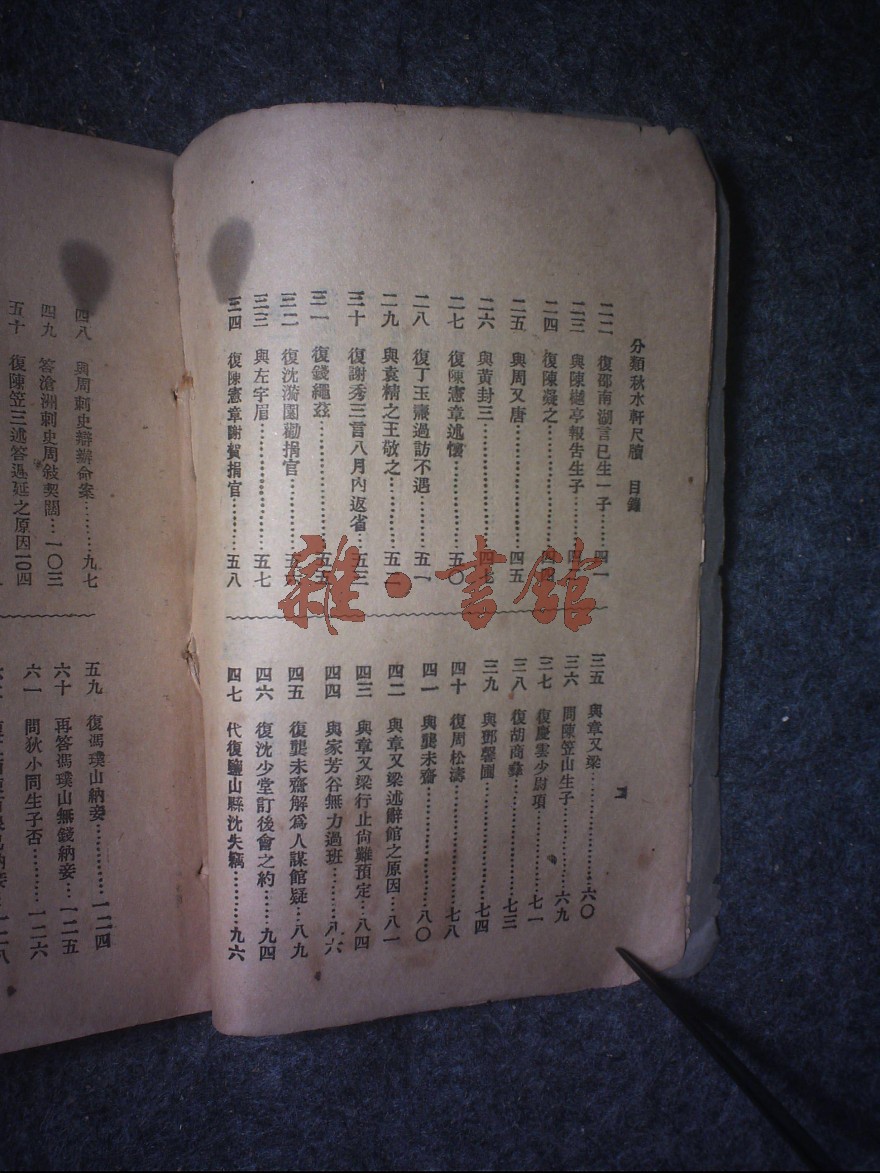 分類秋水軒尺牘 目錄
二二 復邵南湖言已生一子……四一
二三 與陳樾亭報告生子……四
二四 復陳凝之……四
二五 與周又唐……四五
二六 與黃封三……四七
二七 復陳憲章述懷……五〇
二八 復丁玉 過訪不遇……五一
二九 與袁精之王敬之……五二
三十 復謝秀三言八月內返省……五三
三一 復錢繩茲……五五
三二 復沈漪園勸捐官……五
三三 與左宇眉……五七
三四 復陳憲章謝賀捐官……五八
三五 與章又梁……六〇
三六 問陳笠山生子……六九
三七 復慶雲少尉項……七一
三八 復胡商彝……七三
三九 與鄧馨圃……七四
四十 復周松濤……七八
四一 與龔未齋……八〇
四二 與章又梁述辭館之原因…八一
四三 與章又梁行止尙難預定…八四
四四 與家芳谷無力過班……八六
四五 復龔未齋解爲人謀館疑…八九
四六 復沈少堂訂後會之約……九四
四七 代復鹽山縣沈失竊……九六
四八 與周刺史辯辦命案……九七
四九 答滄洲刺史周敍契闊…一〇三
五十 復陳笠三述答遲延之原因一〇四
五九 復馮璞山納妾……一二四
六十 再答馮璞山無錢納妾…一二五
六一 問狄小同生子否……一二六
雜·書館